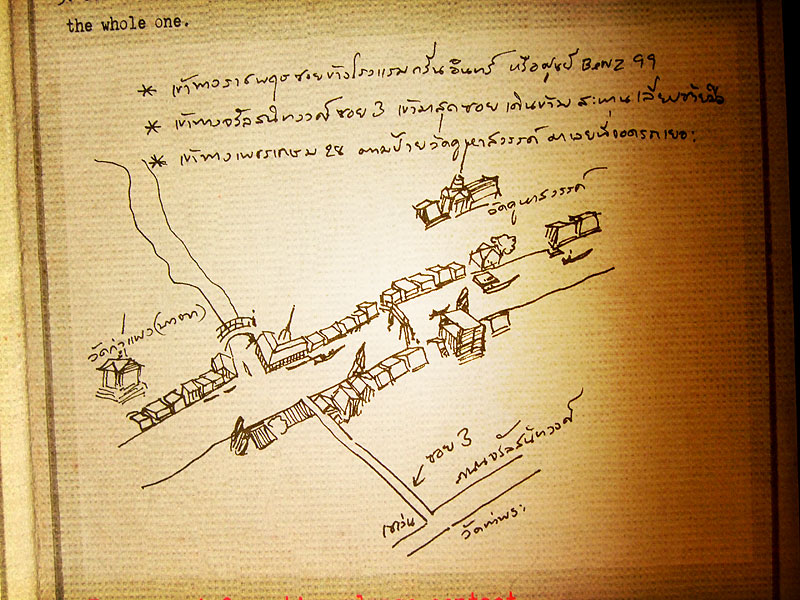 the whole one.
* เข้าทางราชพฤกษ์ซอยข้างโรงแรมกรีนอินทร์ หรือศูนย์ BENZ 99
* เข้าทางจรัลสนิทวงศ์ ซอย 3 เข้ามาสุดซอย เดินข้ามสะพานเลี้ยวซ้ายมือ
* เข้าทางเพชรเกษม 28 ตามป้ายวัดคูหาสวรรค์ มาเลยที่จอดรถเยอะ
วัดคูหาสวรรค์
วัดกำแพง
ซอย 3
ถนนจรัลสนิทวงศ์
เซเว่น
วัดท่าพระ